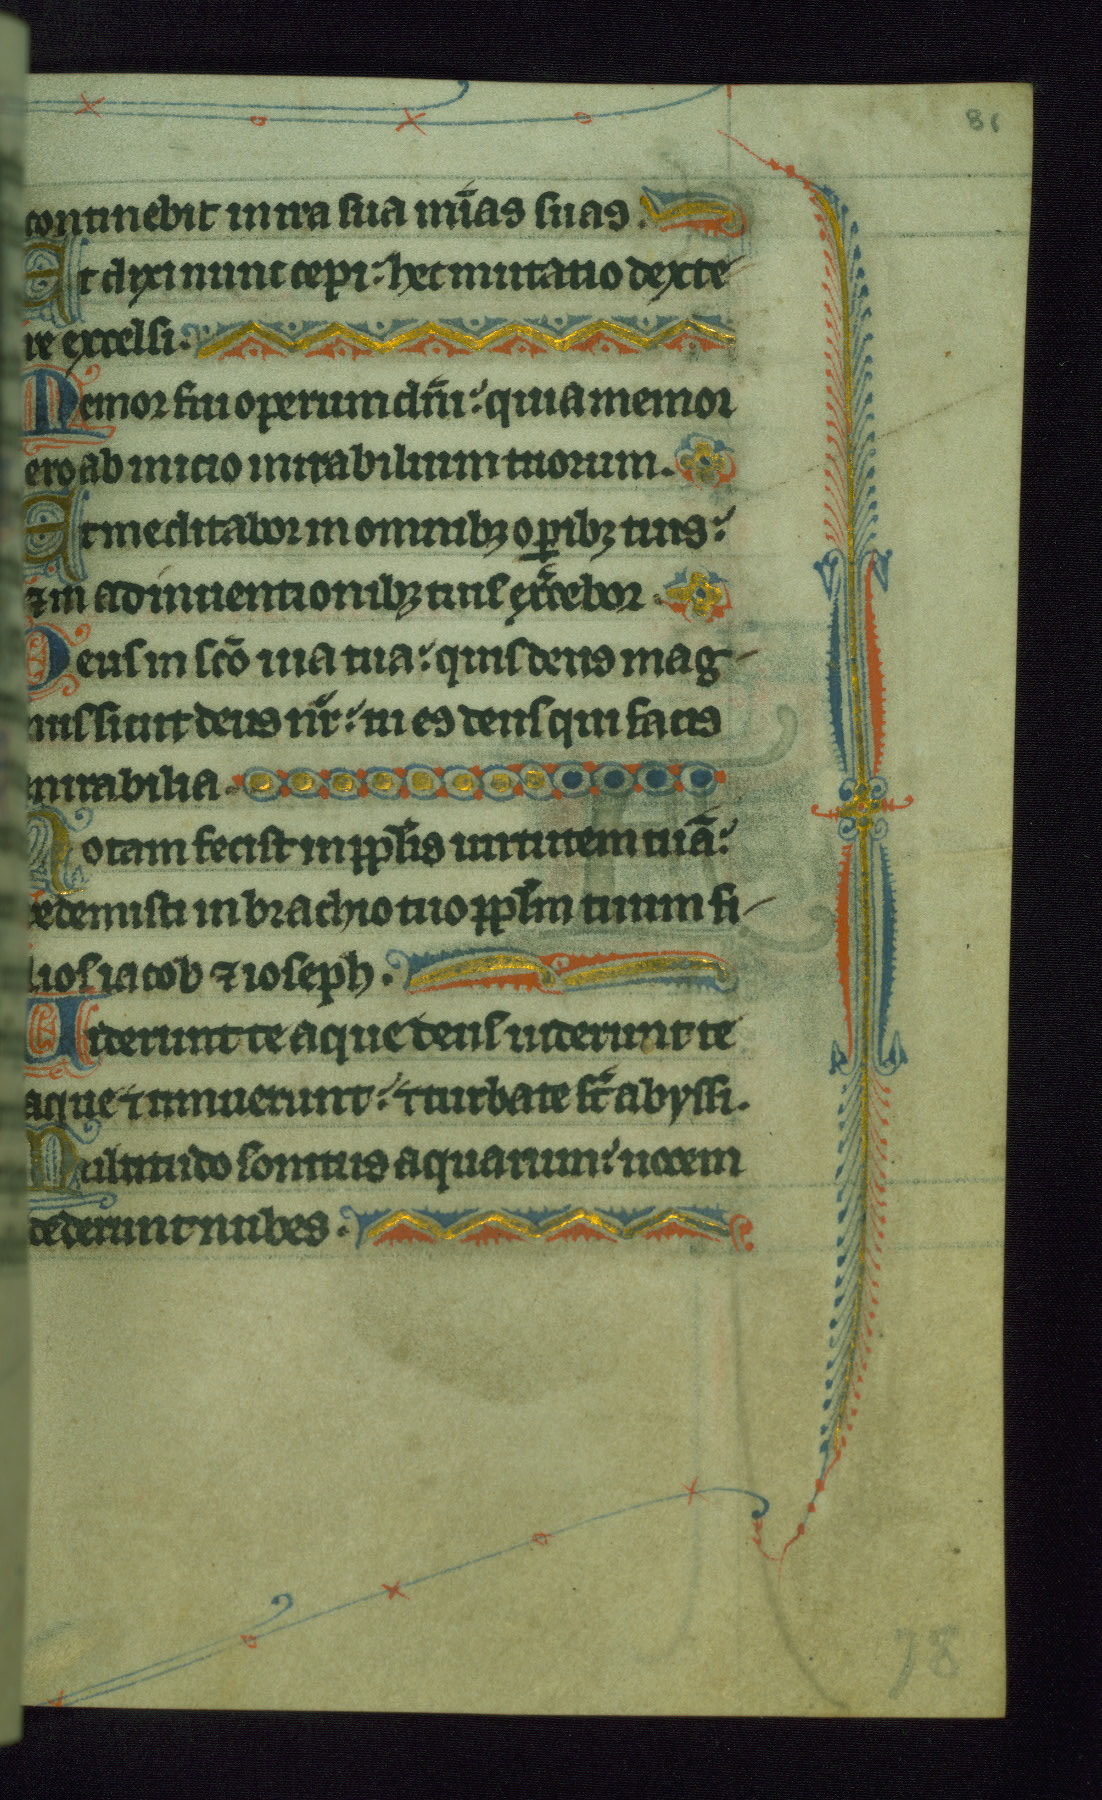 81
continebit in ira sua mīas suas.
Et dixi nunc cepi: hec mutatio dexte
re excelsi.
Memor fui operum dn̄i: quia memor
ero ab inicio mirabilium tuorum.
Et meditabor in omnibꝫ oꝑibꝫ tuis:
⁊ in adinuentionibꝫ tuis ex̄cebor.
Deus in scō uia tua: quis deus mag
nus sicut deus nr̄: tu es deus qui facis
mirabilia.
Notam fecisti in ppl̄is uirtutem tuā:
redemisti in brachio tuo ppl̄m tuum fi
lios iacob ⁊ ioseph.
Uiderunt te aque deus uiderunt te
aque ⁊ timuerunt: ⁊ turbate st̄ abyssi.
Multitudo sonitus aquarum: uocem
dederunt nubes.
78